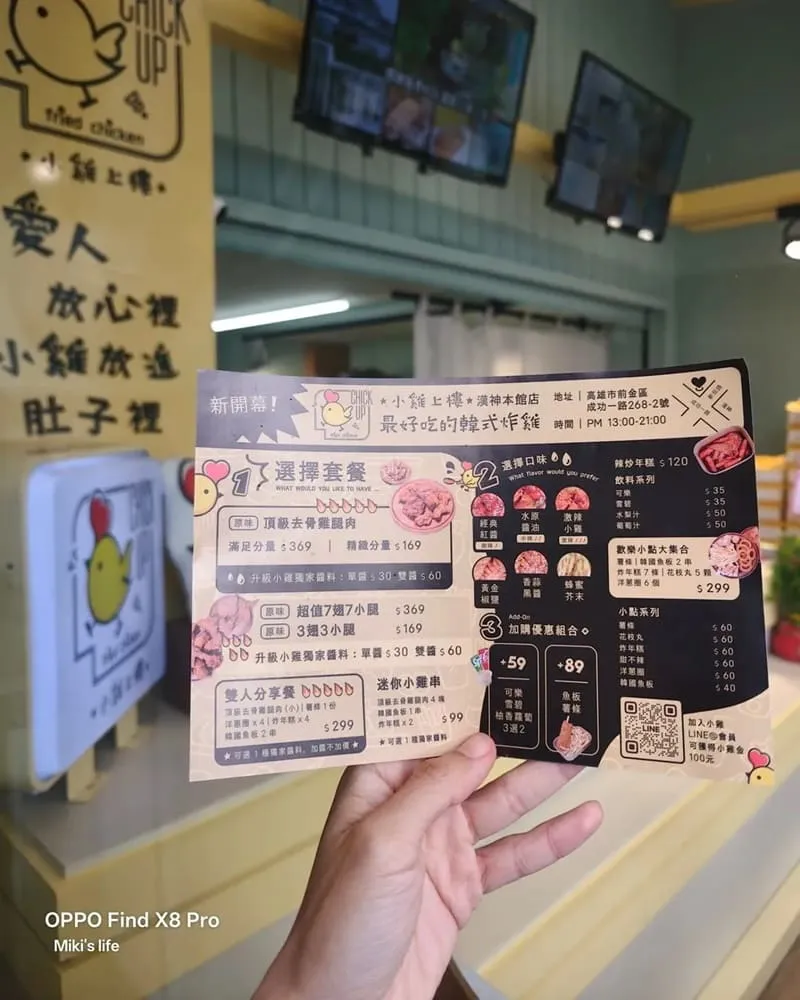 CHICK
UP
fried chicken
•小雞上樓•
愛人
放心裡
小雞放進
肚子裡
新開幕!
CHICK
UP
★小雞上樓★漢神本館店
最好吃的韓式炸雞
地址｜高雄市前金區
成功一路268-2號
時間｜PM 13:00-21:00
成功一路
漢神
1 選擇套餐
WHAT WOULD YOU LIKE TO HAVE
原味 頂級去骨雞腿肉
滿足分量 $369 ｜ 精緻分量 $169
升級小雞獨家醬料：單醬$30·雙醬$60
原味 超值7翅7小腿 $369
原味 3翅3小腿 $169
升級小雞獨家醬料：單醬$30 雙醬$60
雙人分享餐
頂級去骨雞腿肉(小)｜薯條1份
洋蔥圈x4｜炸年糕x4
韓國魚板2串
$299
★可選1種獨家醬料，加醬不加價★
迷你小雞串
頂級去骨雞腿肉4塊
韓國魚板1串
炸年糕x2
$99
★可選1種獨家醬料
2 選擇口味
What flavor would you prefer
經典
紅醬
水原
醬油
激辣
小雞
黃金
椒鹽
香蒜
黑醬
蜂蜜
芥末
3 Add-On
加購優惠組合
+59
可樂
雪碧
柚香蘿蔔
3選2
+89
魚板
薯條
辣炒年糕 $120
飲料系列
可樂 $35
雪碧 $35
水梨汁 $50
葡萄汁 $50
歡樂小點大集合
薯條｜韓國魚板2串
炸年糕7條｜花枝丸5顆
洋蔥圈6個
$299
小點系列
薯條 $60
花枝丸 $60
炸年糕 $60
甜不辣 $60
洋蔥圈 $60
韓國魚板 $40
LINE
加入小雞
LINE@會員
可獲得小雞金
100元
CHICK
UP
fried chicken
•小雞上樓•
OPPO Find X8 Pro
Miki's life